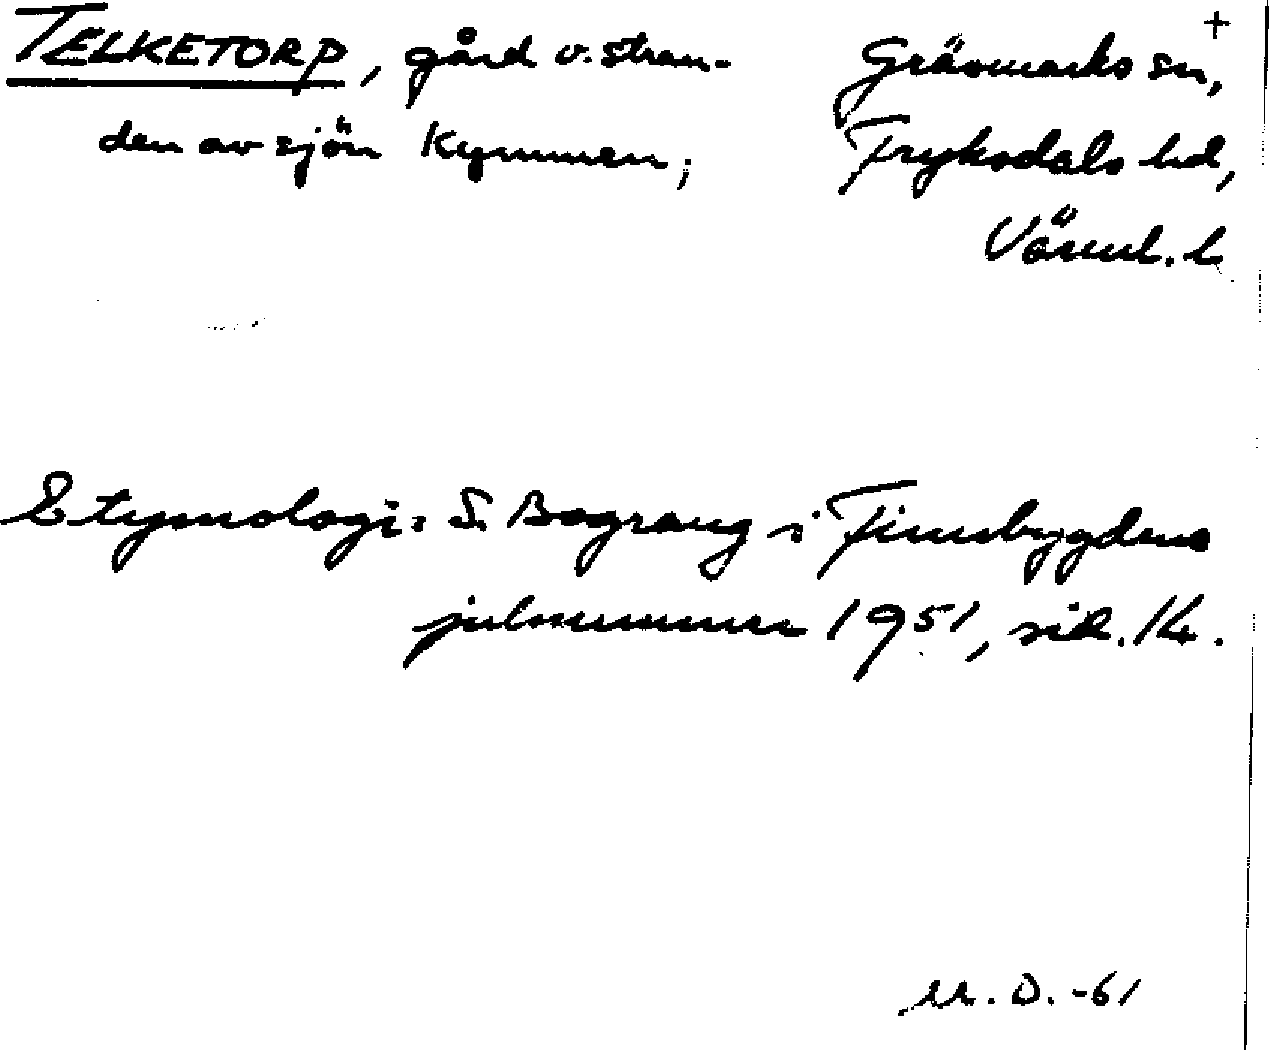 +
TELKETORP, gård v. stran-
den av sjön Kymmen;
Gräsmarks sn,
Fryksdals hd,
Värml. l.
Etymologi: S. Bograng i Finnbygdens
julnummer 1951, sid. 14.
M. D. -61